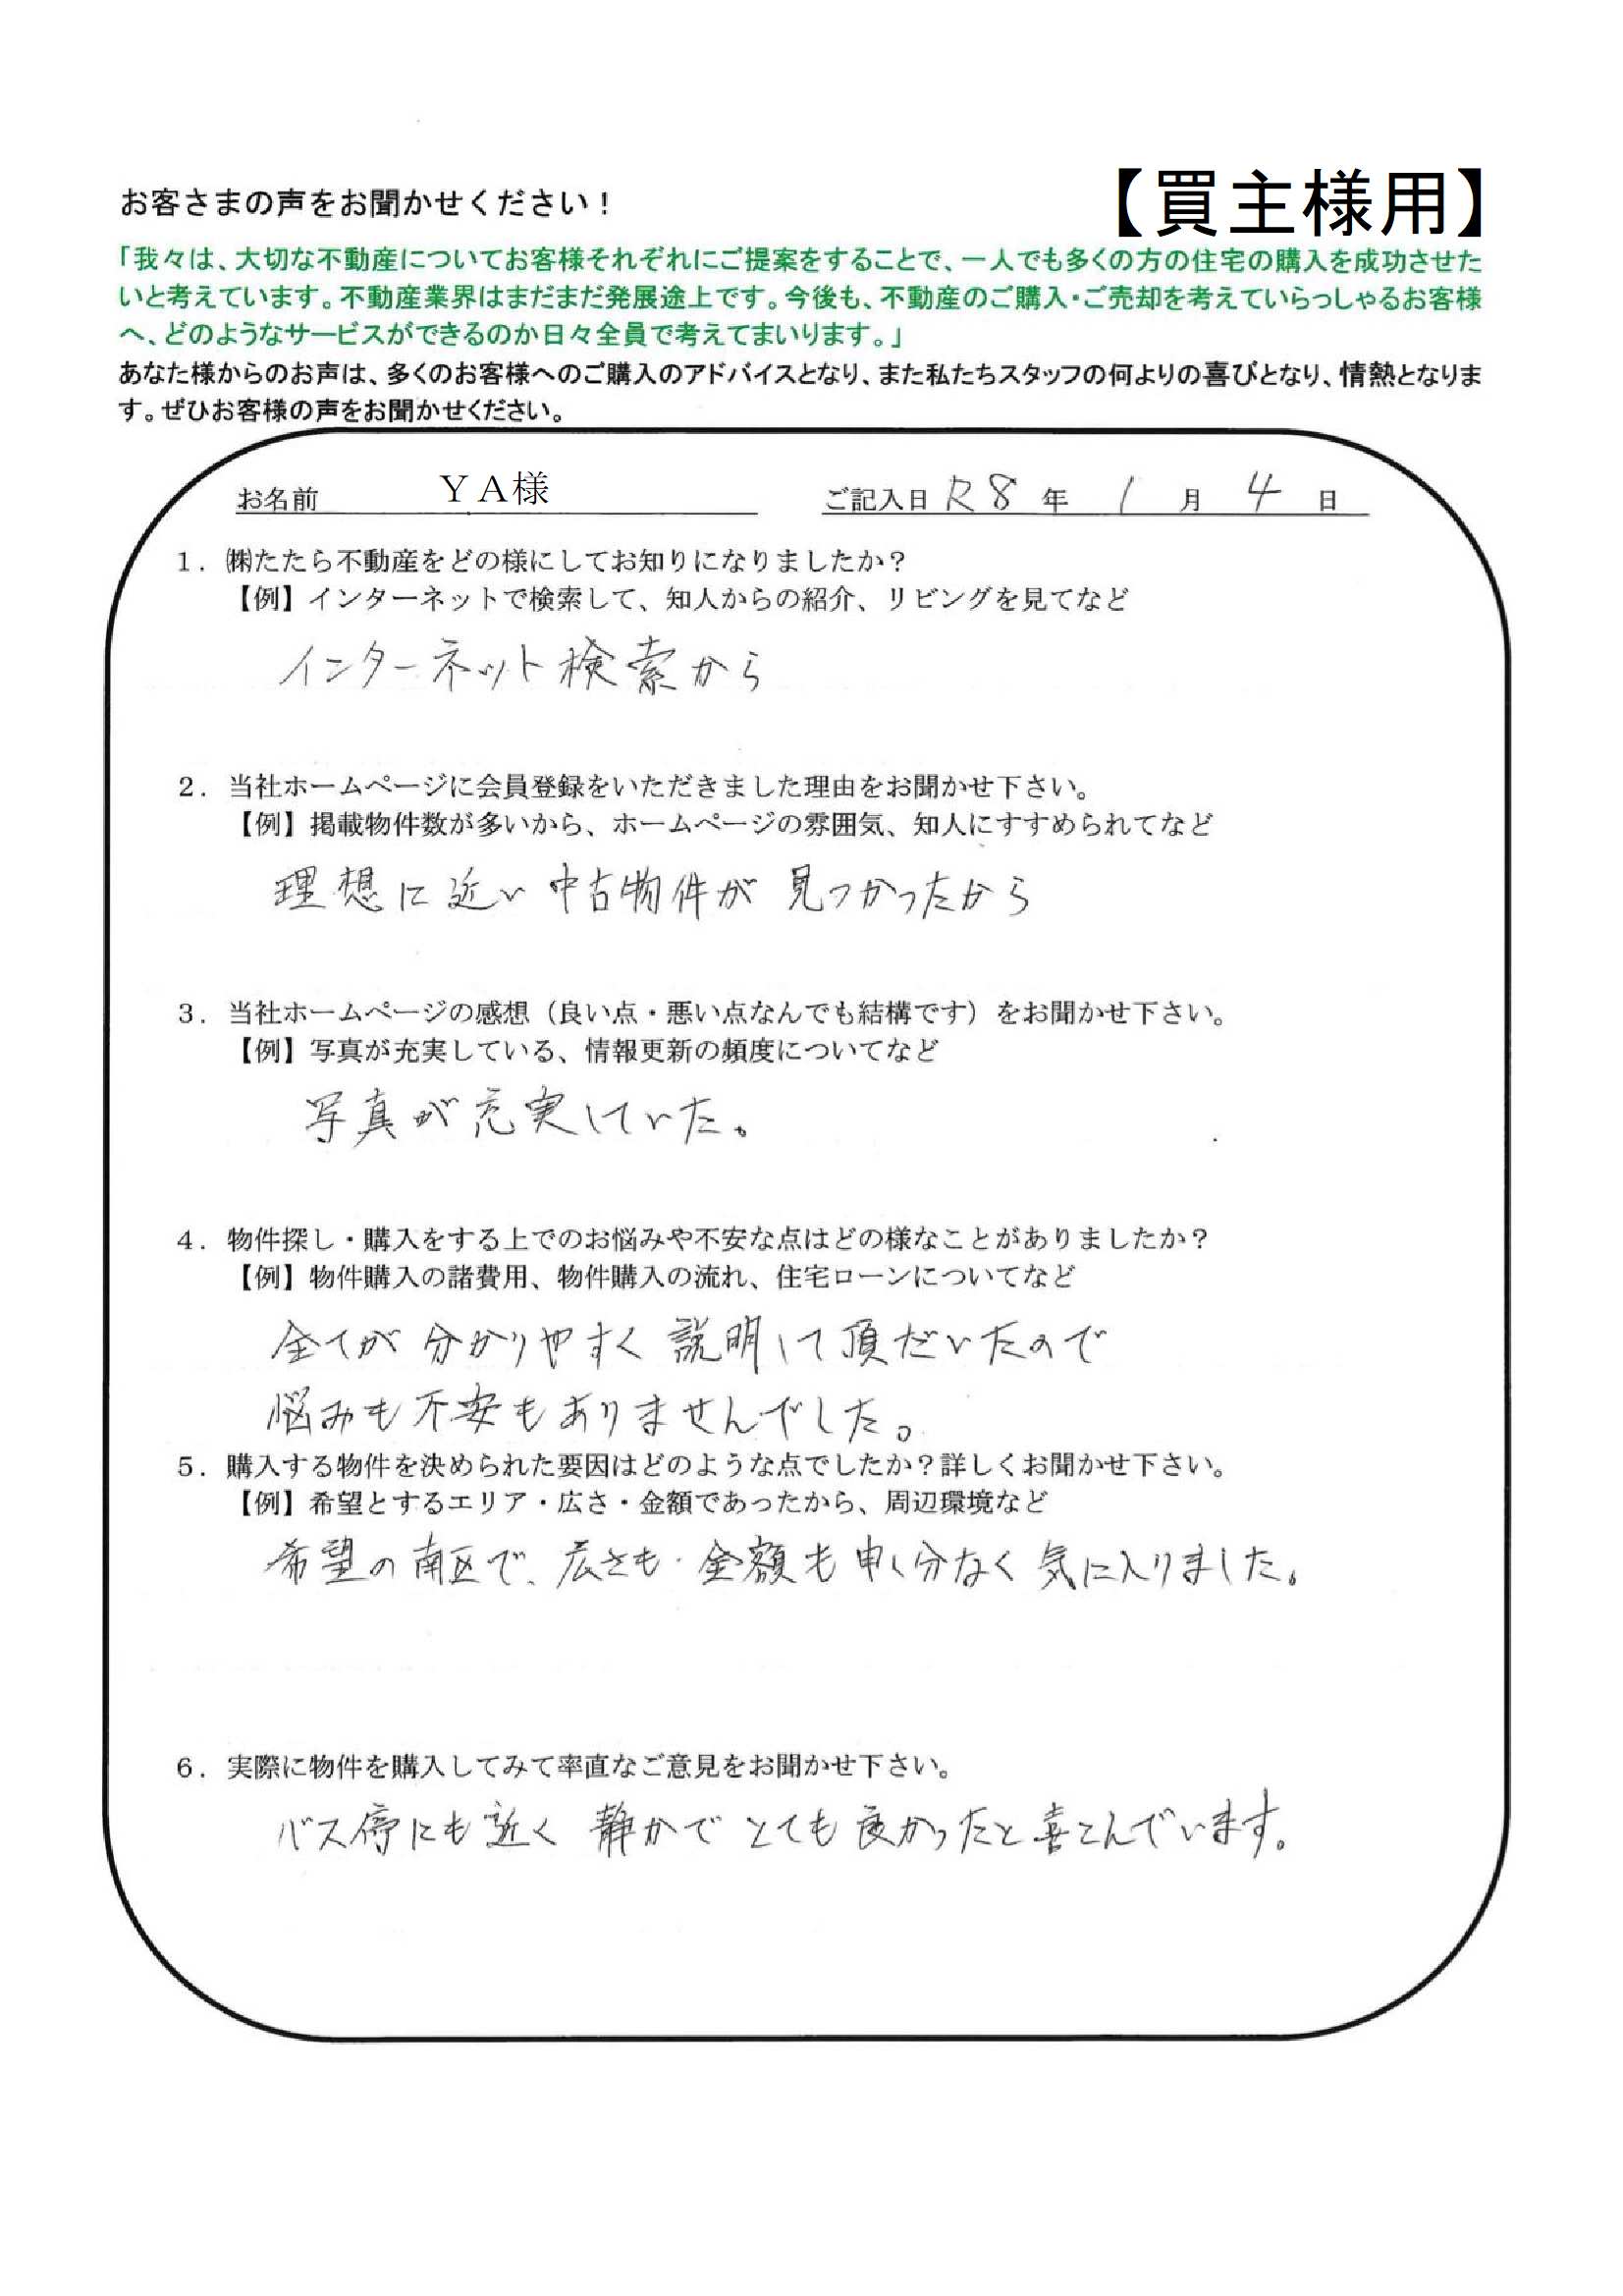 お客さまの声をお聞かせください！
【買主様用】
「我々は、大切な不動産についてお客様それぞれにご提案をすることで、一人でも多くの方の住宅の購入を成功させた
いと考えています。不動産業界はまだまだ発展途上です。今後も、不動産のご購入・ご売却を考えていらっしゃるお客様
へ、どのようなサービスができるのか日々全員で考えてまいります。」
あなた様からのお声は、多くのお客様へのご購入のアドバイスとなり、また私たちスタッフの何よりの喜びとなり、情熱となりま
す。ぜひお客様の声をお聞かせください。
お名前 ＹＡ様 ご記入日 R8 年 1 月 4 日
１．㈱たたら不動産をどの様にしてお知りになりましたか？
【例】インターネットで検索して、知人からの紹介、リビングを見てなど
インターネット検索から
２．当社ホームページに会員登録をいただきました理由をお聞かせ下さい。
【例】掲載物件数が多いから、ホームページの雰囲気、知人にすすめられてなど
理想に近い中古物件が見つかったから
３．当社ホームページの感想（良い点・悪い点なんでも結構です）をお聞かせ下さい。
【例】写真が充実している、情報更新の頻度についてなど
写真が充実していた。
４．物件探し・購入をする上でのお悩みや不安な点はどの様なことがありましたか？
【例】物件購入の諸費用、物件購入の流れ、住宅ローンについてなど
全てが分かりやすく説明して頂だいたので
悩みも不安もありませんでした。
５．購入する物件を決められた要因はどのような点でしたか？詳しくお聞かせ下さい。
【例】希望とするエリア・広さ・金額であったから、周辺環境など
希望の南区で、広さも・金額も申し分なく気に入りました。
６．実際に物件を購入してみて率直なご意見をお聞かせ下さい。
バス停にも近く静かでとても良かったと喜こんでいます。